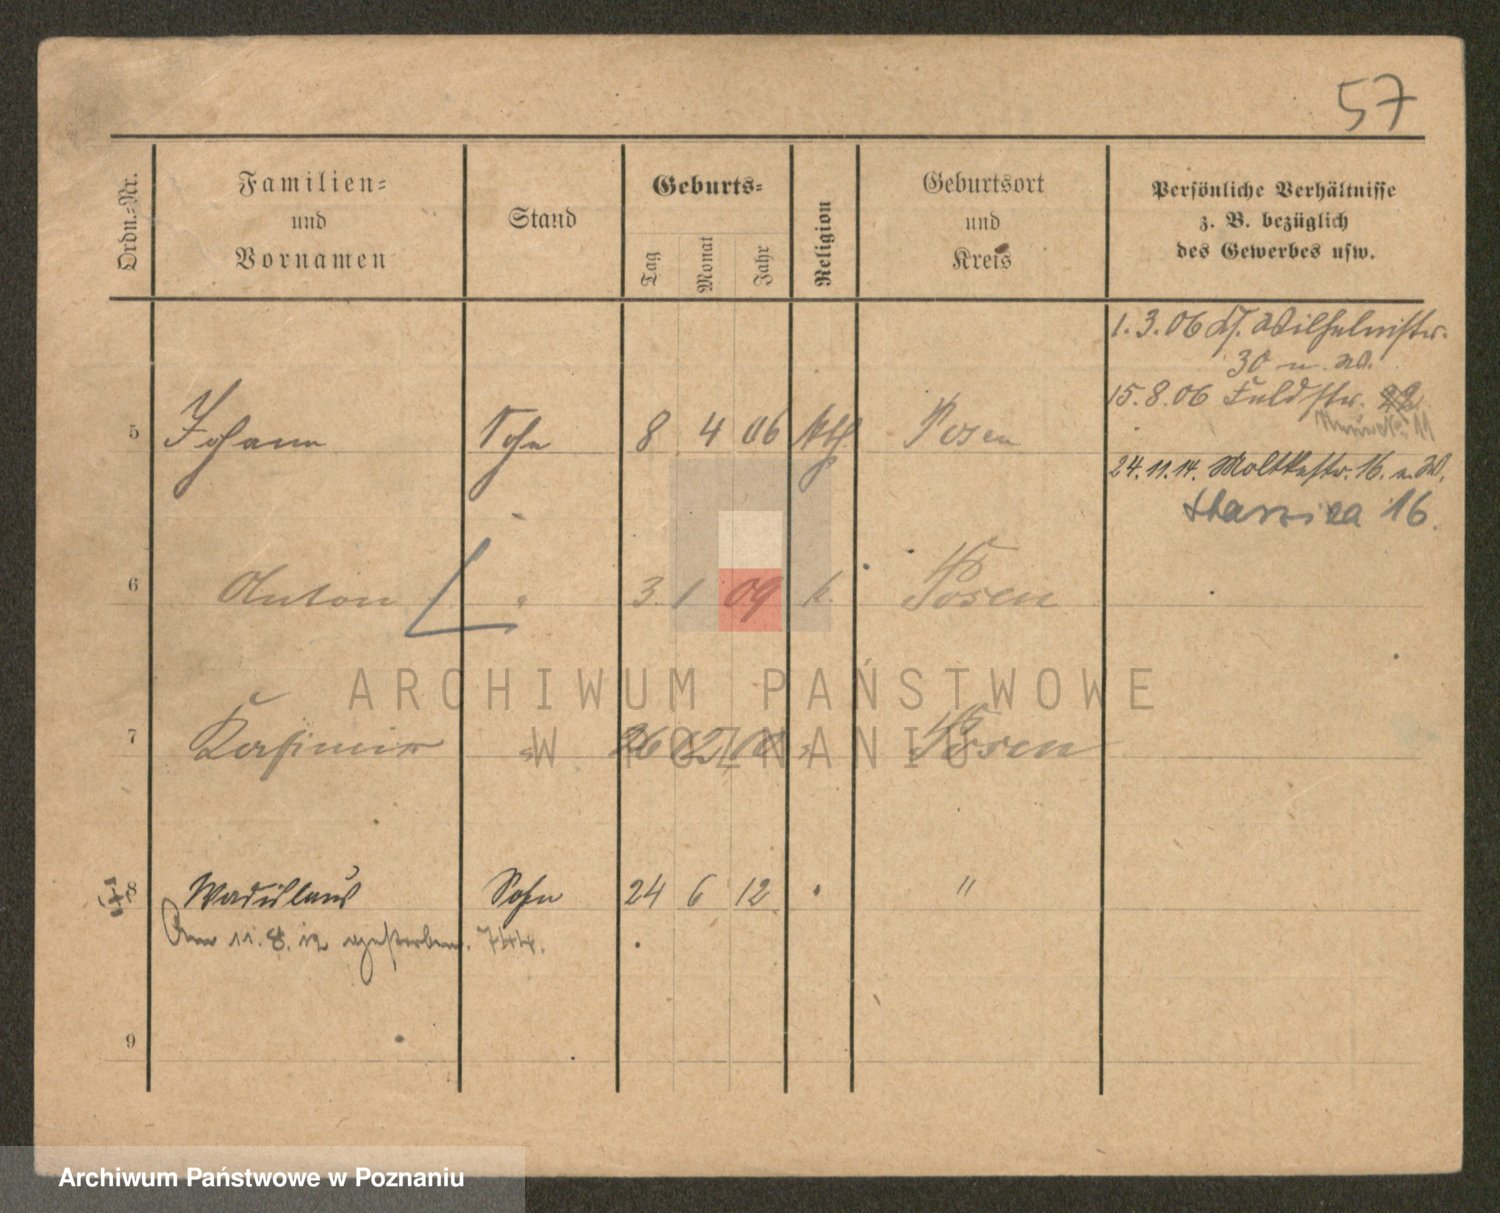 57
Ordn.-Nr.
Familien-
und
Vornamen
Stand
Geburts-
Tag
Monat
Jahr
Religion
Geburtsort
und
Kreis
Persönliche Verhältnisse
z. B. bezüglich
des Gewerbes usw.
1.3.06 Wilhelmstr.
30 u. W.
15.8.06 Feldstr. 22
11
5 Johann Sohn 8 4 06 kth. Posen
24.11.14. Moltkestr. 16. u. W.
16.
6 Anton " 3. 1 09 k. Posen
ARCHIWUM PAŃSTWOWE
W POZNANIU
7 Kasimir " 26 12 10 " Posen
8 Wadislaus Sohn 24 6 12 " "
Am 11. 8. 12 gestorben. 744.
9
Archiwum Państwowe w Poznaniu